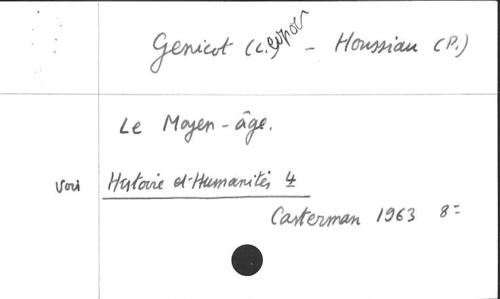 Genicot (L.) Léopold - Houssiau (P.)
Le Moyen-âge.
Voir Histoire et Humanités 4
Casterman 1963 8=